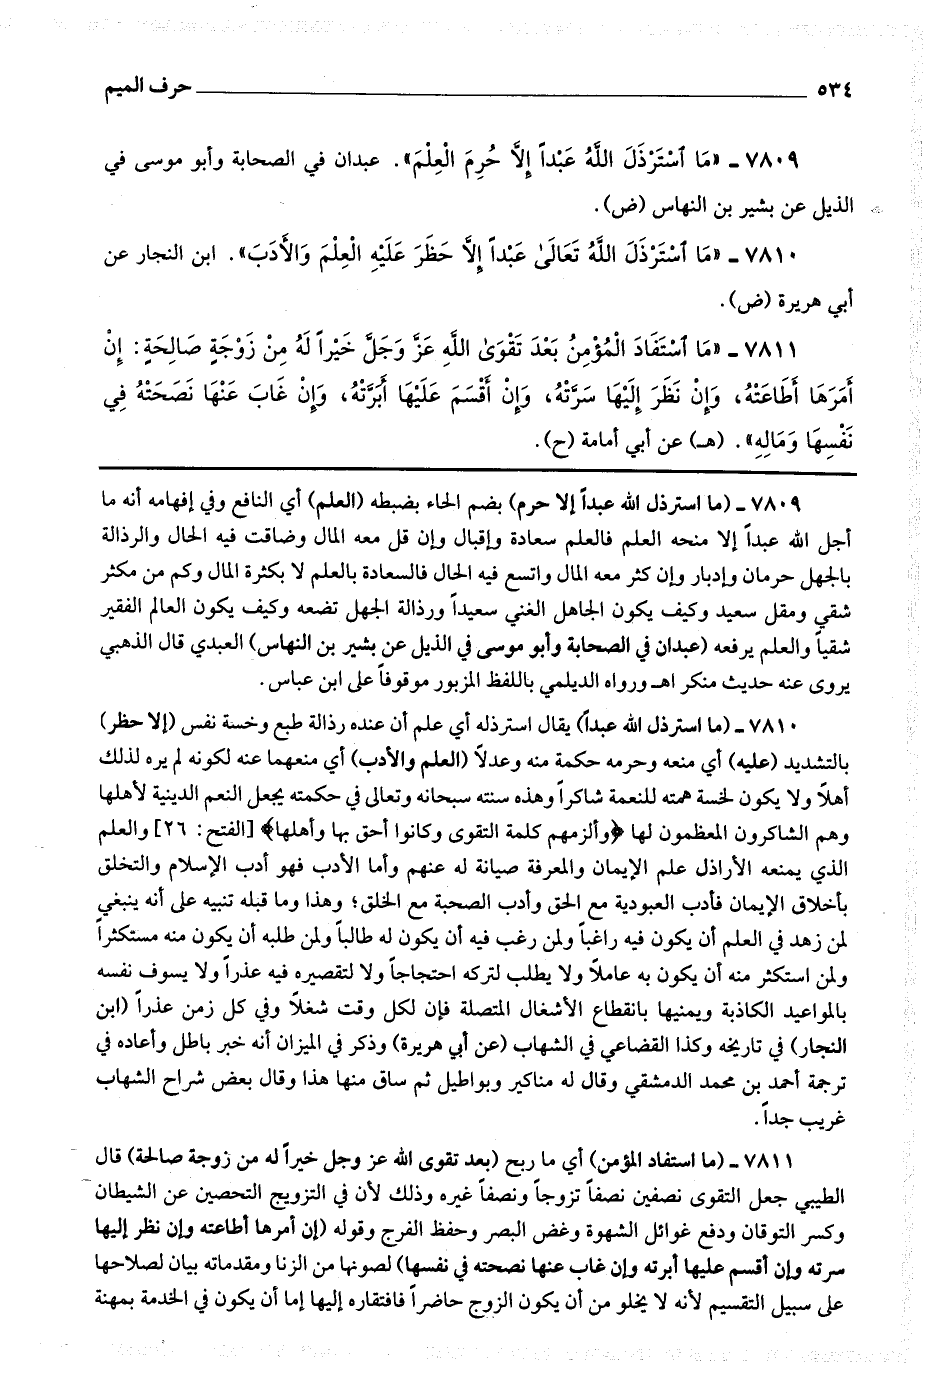 ٥٣٤ حرف الميم
٧٨٠٩ ـ «مَا ٱسْتَرْذَلَ اللَّهُ عَبْداً إِلَّا حُرِمَ الْعِلْمَ». عبدان في الصحابة وأبو موسى في
الذيل عن بشير بن النهاس (ض).
٧٨١٠ ـ «مَا ٱسْتَرْذَلَ اللَّهُ تَعَالَىٰ عَبْداً إِلَّا حَظَرَ عَلَيْهِ الْعِلْمَ وَالْأَدَبَ». ابن النجار عن
أبي هريرة (ض).
٧٨١١ ـ «مَا ٱسْتَفَادَ الْمُؤْمِنُ بَعْدَ تَقْوَىٰ اللَّهِ عَزَّ وَجَلَّ خَيْراً لَهُ مِنْ زَوْجَةٍ صَالِحَةٍ: إِنْ
أَمَرَهَا أَطَاعَتْهُ، وَإِنْ نَظَرَ إِلَيْهَا سَرَّتْهُ، وَإِنْ أَقْسَمَ عَلَيْهَا أَبَرَّتْهُ، وَإِنْ غَابَ عَنْهَا نَصَحَتْهُ فِي
نَفْسِهَا وَمَالِهِ». (هـ) عن أبي أمامة (ح).
٧٨٠٩ ـ (ما استرذل الله عبداً إلا حرم) بضم الحاء بضبطه (العلم) أي النافع وفي إفهامه أنه ما
أجل الله عبداً إلا منحه العلم فالعلم سعادة وإقبال وإن قل معه المال وضاقت فيه الحال والرذالة
بالجهل حرمان وإدبار وإن كثر معه المال واتسع فيه الحال فالسعادة بالعلم لا بكثرة المال وكم من مكثر
شقي ومقل سعيد وكيف يكون الجاهل الغني سعيداً ورذالة الجهل تضعه وكيف يكون العالم الفقير
شقياً والعلم يرفعه (عبدان في الصحابة وأبو موسى في الذيل عن بشير بن النهاس) العبدي قال الذهبي
يروى عنه حديث منكر اهـ ورواه الديلمي باللفظ المزبور موقوفاً على ابن عباس.
٧٨١٠ ـ (ما استرذل الله عبداً) يقال استرذله أي علم أن عنده رذالة طبع وخسة نفس (إلا حظر)
بالتشديد (عليه) أي منعه وحرمه حكمة منه وعدلاً (العلم والأدب) أي منعهما عنه لكونه لم يره لذلك
أهلاً ولا يكون لخسة همته للنعمة شاكراً وهذه سنته سبحانه وتعالى في حكمته يجعل النعم الدينية لأهلها
وهم الشاكرون المعظمون لها ﴿وألزمهم كلمة التقوى وكانوا أحق بها وأهلها﴾ [الفتح: ٢٦] والعلم
الذي يمنعه الأراذل علم الإيمان والمعرفة صيانة له عنهم وأما الأدب فهو أدب الإسلام والتخلق
بأخلاق الإيمان فأدب العبودية مع الحق وأدب الصحبة مع الخلق؛ وهذا وما قبله تنبيه على أنه ينبغي
لمن زهد في العلم أن يكون فيه راغباً ولمن رغب فيه أن يكون له طالباً ولمن طلبه أن يكون منه مستكثراً
ولمن استكثر منه أن يكون به عاملاً ولا يطلب لتركه احتجاجاً ولا لتقصيره فيه عذراً ولا يسوف نفسه
بالمواعيد الكاذبة ويمنيها بانقطاع الأشغال المتصلة فإن لكل وقت شغلاً وفي كل زمن عذراً (ابن
النجار) في تاريخه وكذا القضاعي في الشهاب (عن أبي هريرة) وذكر في الميزان أنه خبر باطل وأعاده في
ترجمة أحمد بن محمد الدمشقي وقال له مناكير وبواطيل ثم ساق منها هذا وقال بعض شراح الشهاب
غريب جداً.
٧٨١١ ـ (ما استفاد المؤمن) أي ما ربح (بعد تقوى الله عز وجل خيراً له من زوجة صالحة) قال
الطيبي جعل التقوى نصفين نصفاً تزوجاً ونصفاً غيره وذلك لأن في التزويج التحصين عن الشيطان
وكسر التوقان ودفع غوائل الشهوة وغض البصر وحفظ الفرج وقوله (إن أمرها أطاعته وإن نظر إليها
سرته وإن أقسم عليها أبرته وإن غاب عنها نصحته في نفسها) لصونها من الزنا ومقدماته بيان لصلاحها
على سبيل التقسيم لأنه لا يخلو من أن يكون الزوج حاضراً فافتقاره إليها إما أن يكون في الخدمة بمهنة